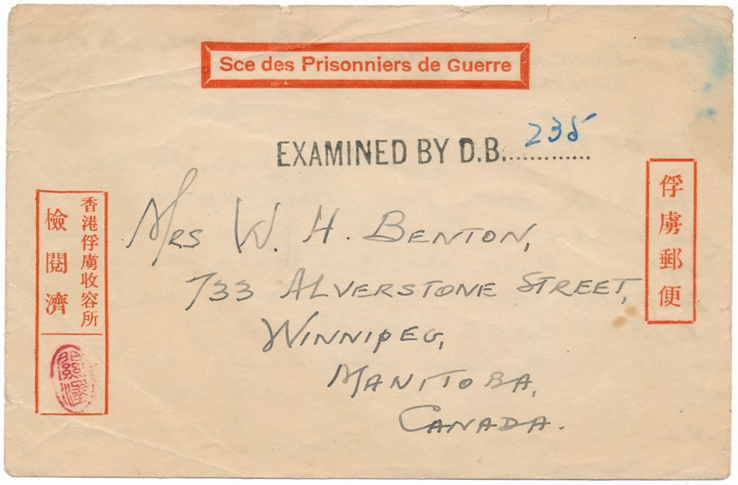 Sce des Prisonniers de Guerre
EXAMINED BY D.B. 235
俘虜郵便
香港俘虜收容所
檢閲濟
Mrs W. H. BENTON,
733 ALVERSTONE STREET,
WINNIPEG,
MANITOBA,
CANADA.